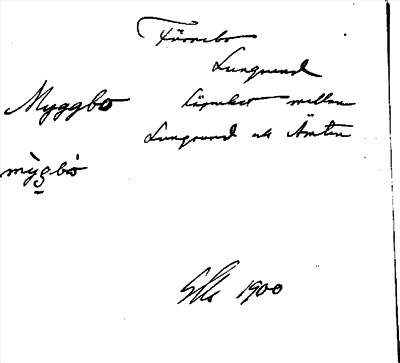 Färnebo
Lungsund
Myggbo
Lägenhet mellan
Lungsund och Ämten
mỳgbò
1900